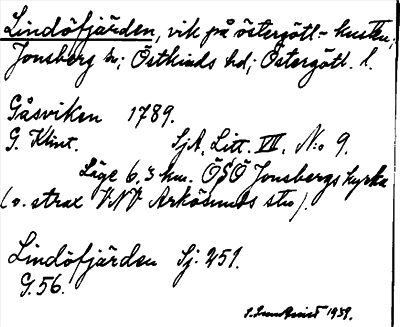 Lindöfjärden, vik på östergötl.-kusten;
Jonsberg sn; Östkinds hd; Östergötl. l.
Gåsviken 1789.
G. Klint. SjA, Litt. VII, N:o 9.
Läge 6.3 km. ÖSÖ Jonsbergs kyrka
(o. strax VNV Arkösunds stn).
Lindöfjärden Sj. 251.
G.56.
1939.